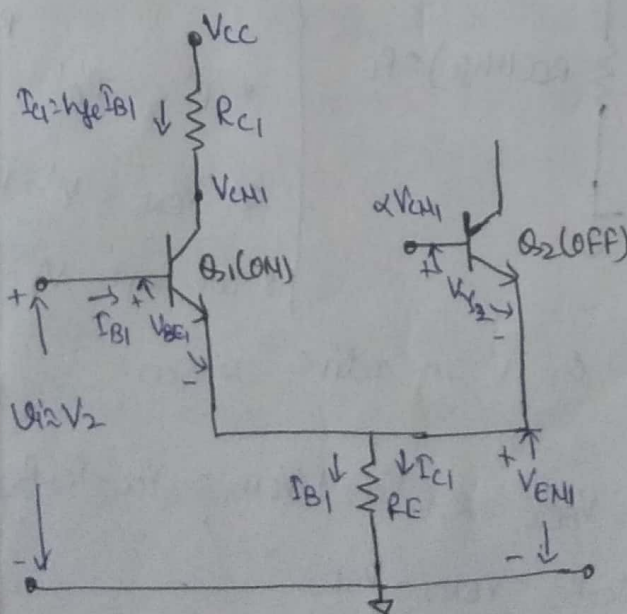 VCC
IC1=hfe IB1
RC1
VCN1
αVCN1
Q1(ON)
Q2(OFF)
+
IB1
+
VBE1
-
+
-
Vi=V2
IB1
IC1
RE
+
VEN1
-
-